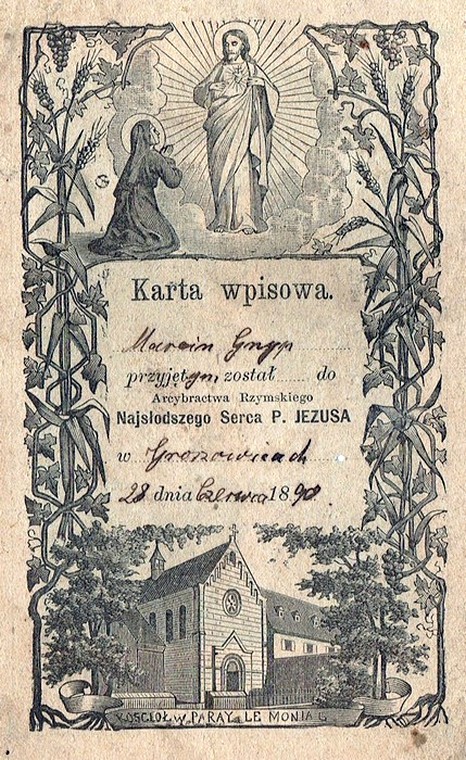 Karta wpisowa.
Marcin Gnyp
przyjętym został do
Arcybractwa Rzymskiego
Najsłodszego Serca P. JEZUSA
w Gronowicach
28 dnia Czerwca 1890.
KOSCIOŁ W PARAY LE MONIAL